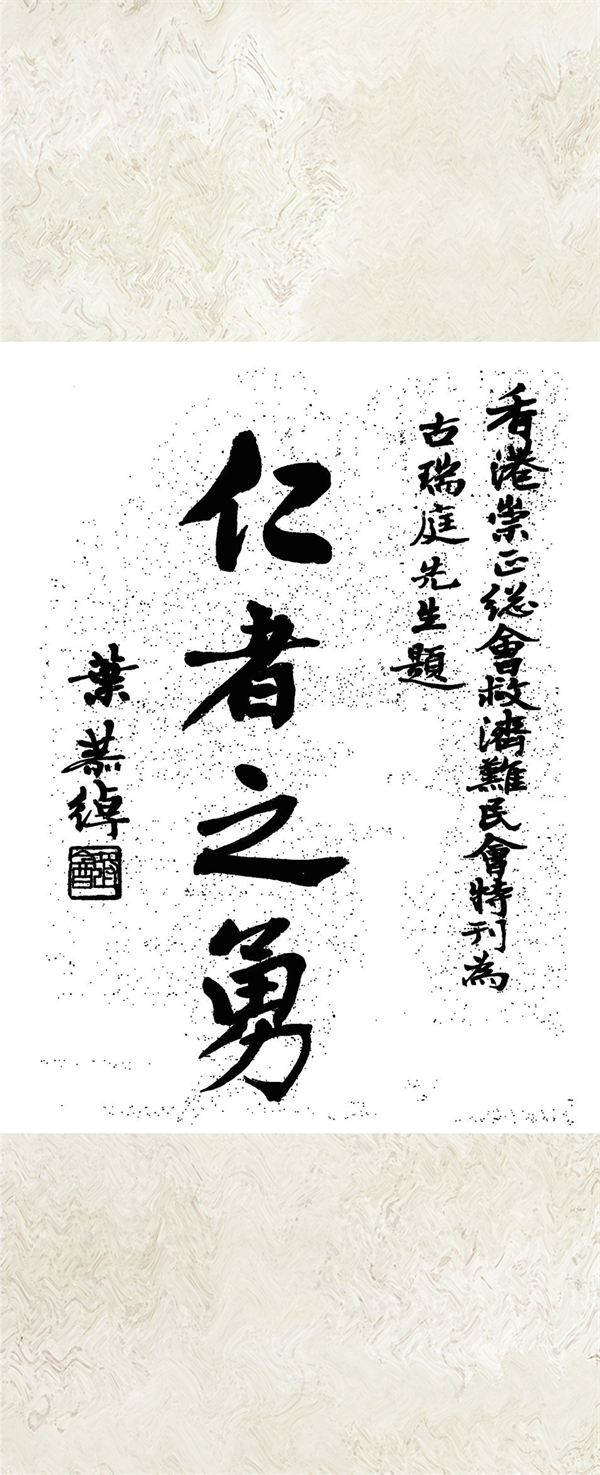 香港崇正総會救濟難民會特刊為
古瑞庭先生題
仁者之勇
葉恭綽